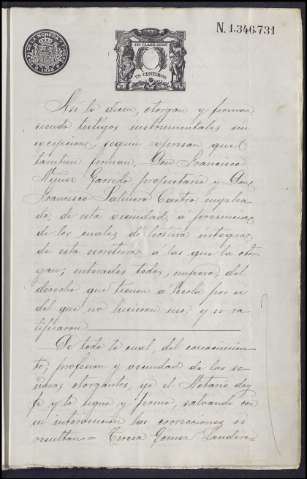 N. 1.346.731
Así lo dicen, otorgan y firman
siendo testigos instrumentales sin
excepcion, segun expresan, que
tambien firman, Don Francisco
Muñoz Garrido propietario y Don
Francisco Palmero Castro emplea-
do, de esta vecindad, á presencia
de los cuales dí lectura íntegra
de esta escritura á los que la otor-
gan, enterados todos, empero, del
derecho que tienen á leerla por sí
del que no hicieron uso, y se ra-
tificaron.
De todo lo cual, del conocimien-
to, profesion y vecindad de los se-
ñores otorgantes, yo el Notario doy
fé y lo signo y firmo, salvando con
su intervencion las correcciones
resultan = Teresa Gomez